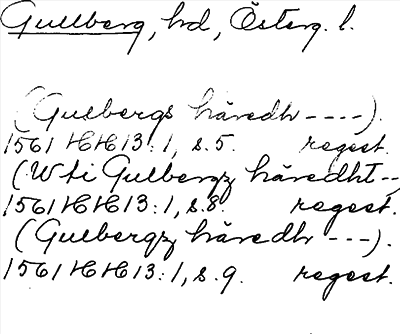 Gullberg, hd, Österg. l.
(Gulbergs häredh ----).
1561 HH 13:1, s. 5. regest.
(Wti Gulbergz häredht --
1561 HH 13:1, s. 8. regest.
(Gulbergz häredh ---).
1561 HH 13:1, s. 9. regest.